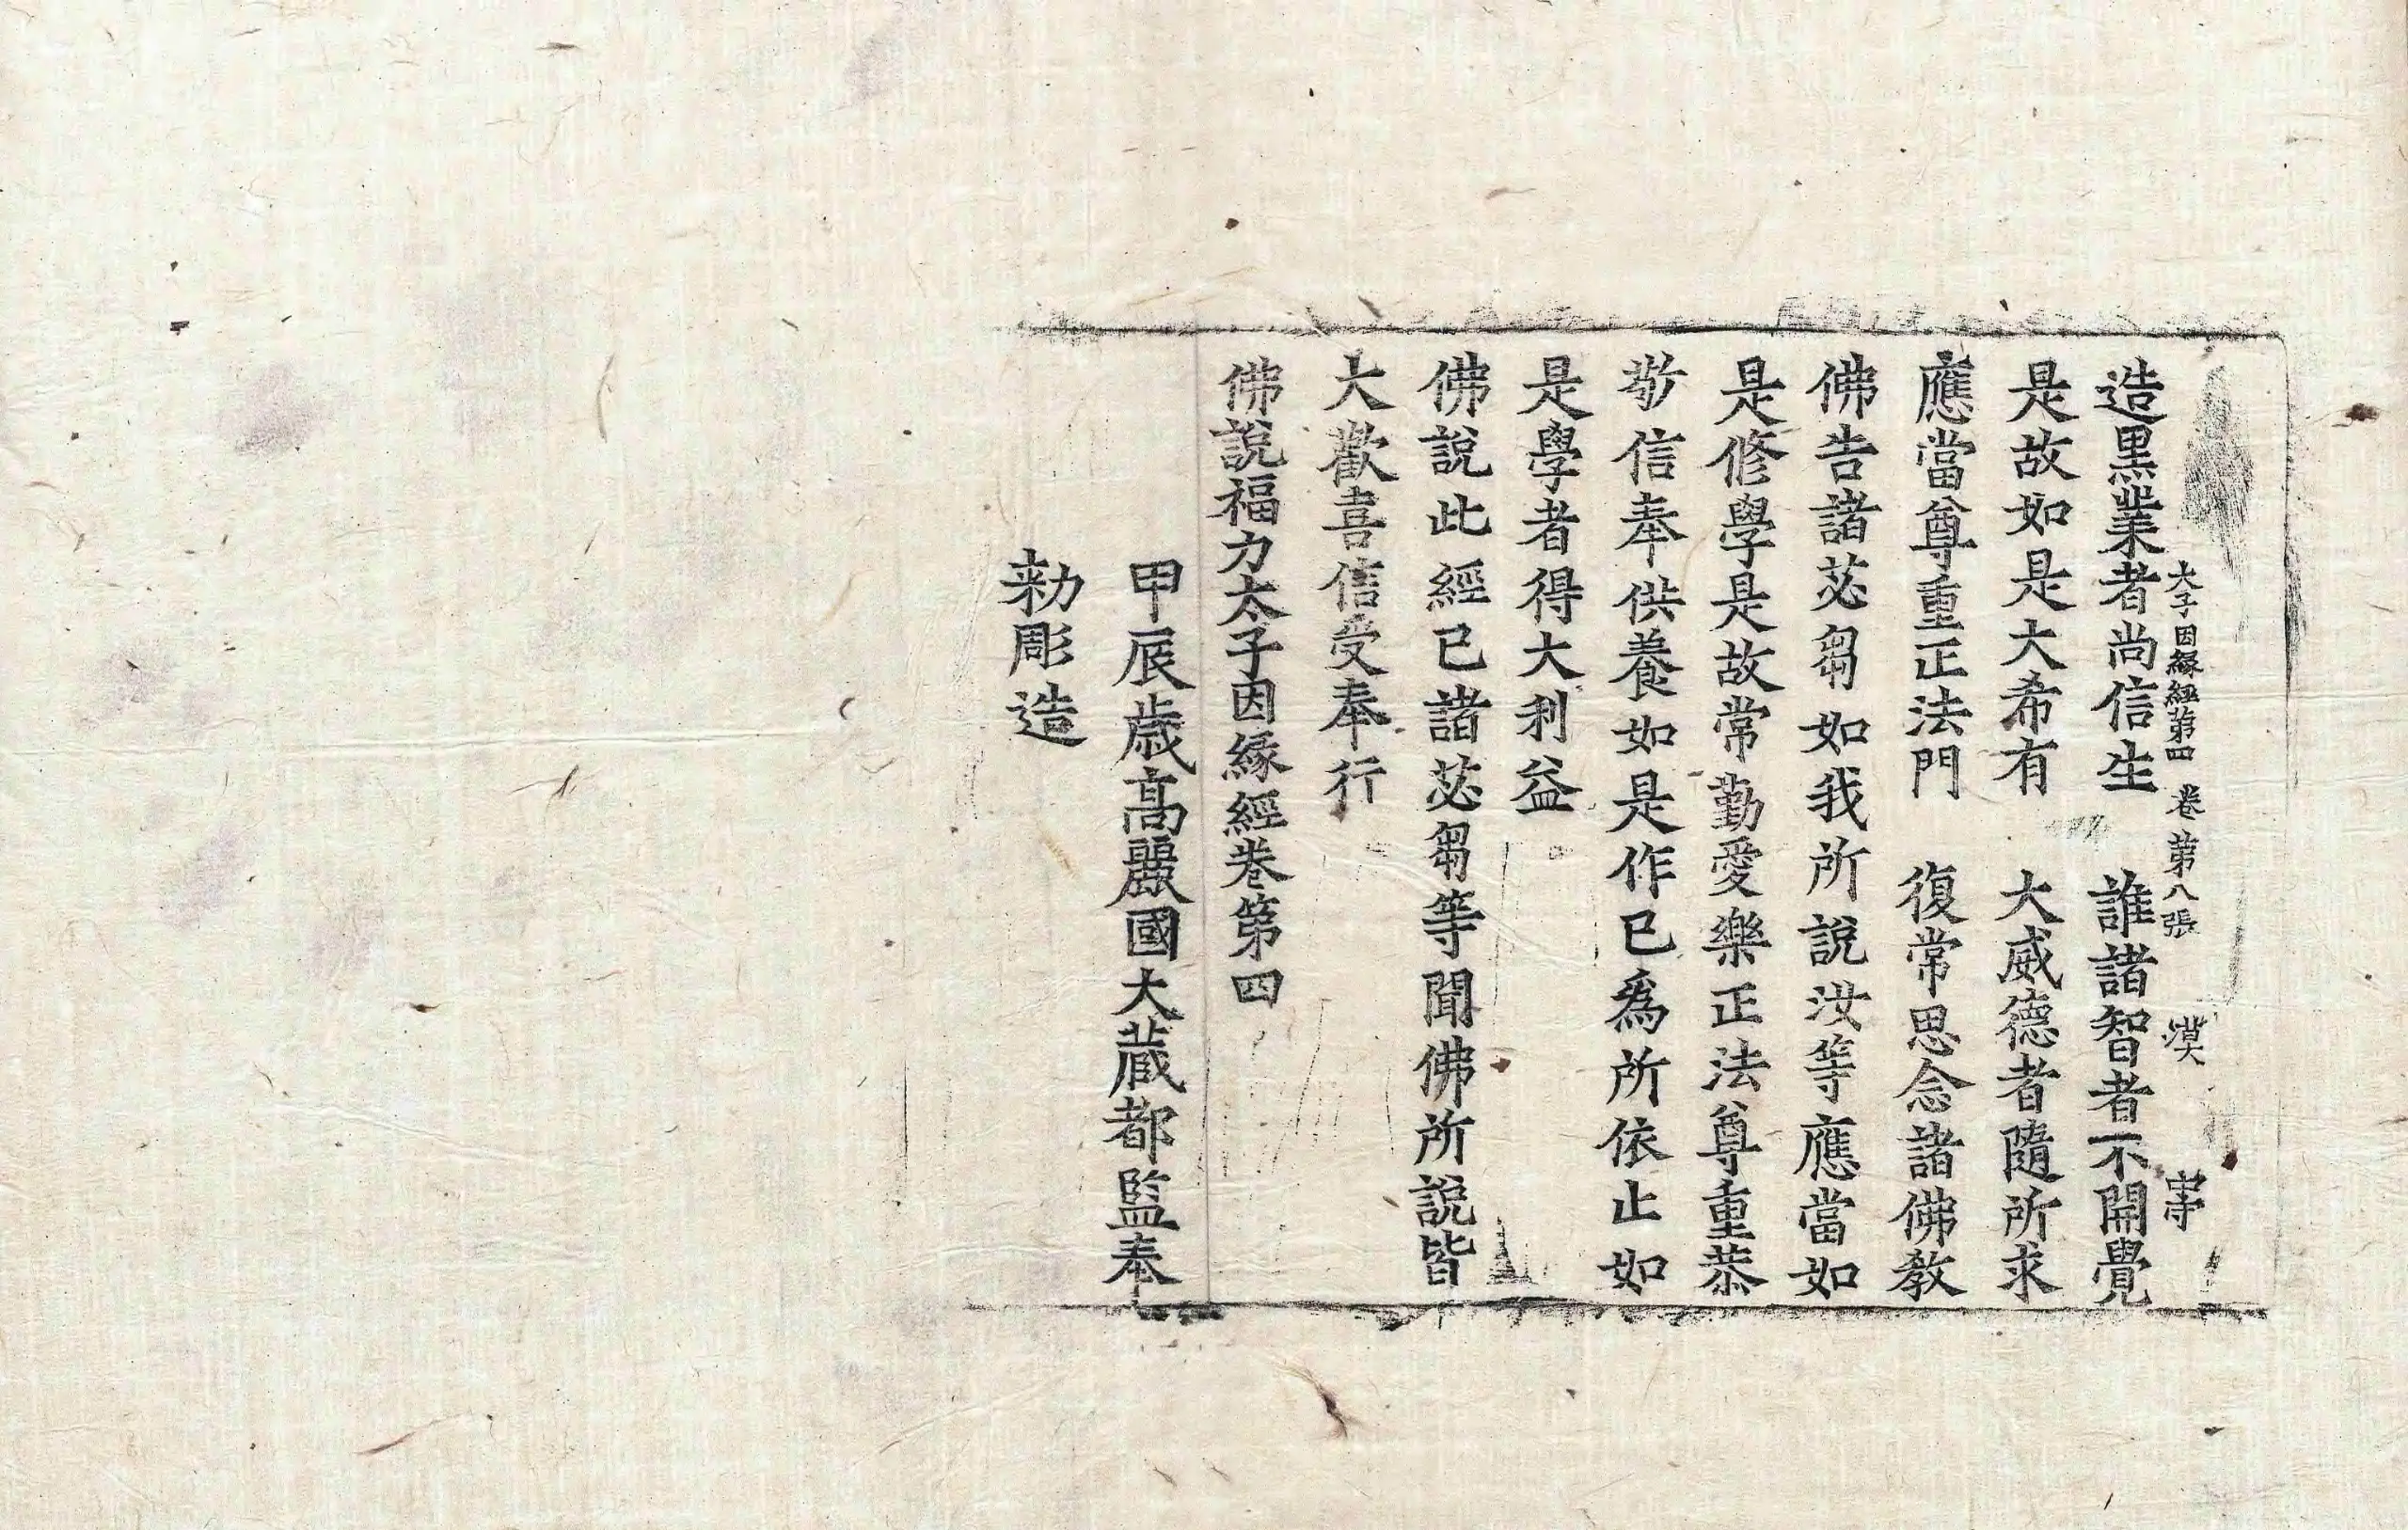 大子因縁經第四 卷 第八張 漠
造黑業者尚信生 誰諸智者不開覺
是故如是大希有 大威德者隨所求
應當尊重正法門 復常思念諸佛教
佛告諸苾芻如我所說汝等應當如
是修學是故常勤愛樂正法尊重恭
敬信奉供養如是作已爲所依止如
是學者得大利益
佛說此經已諸苾芻等聞佛所說皆
大歡喜信受奉行
佛說福力太子因緣經卷第四
甲辰歲高麗國大藏都監奉
勅彫造